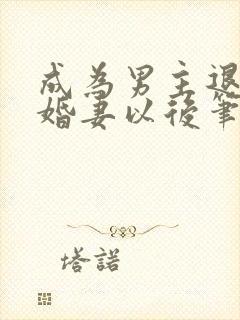 成為男主退
婚妻以後筆
塔諾